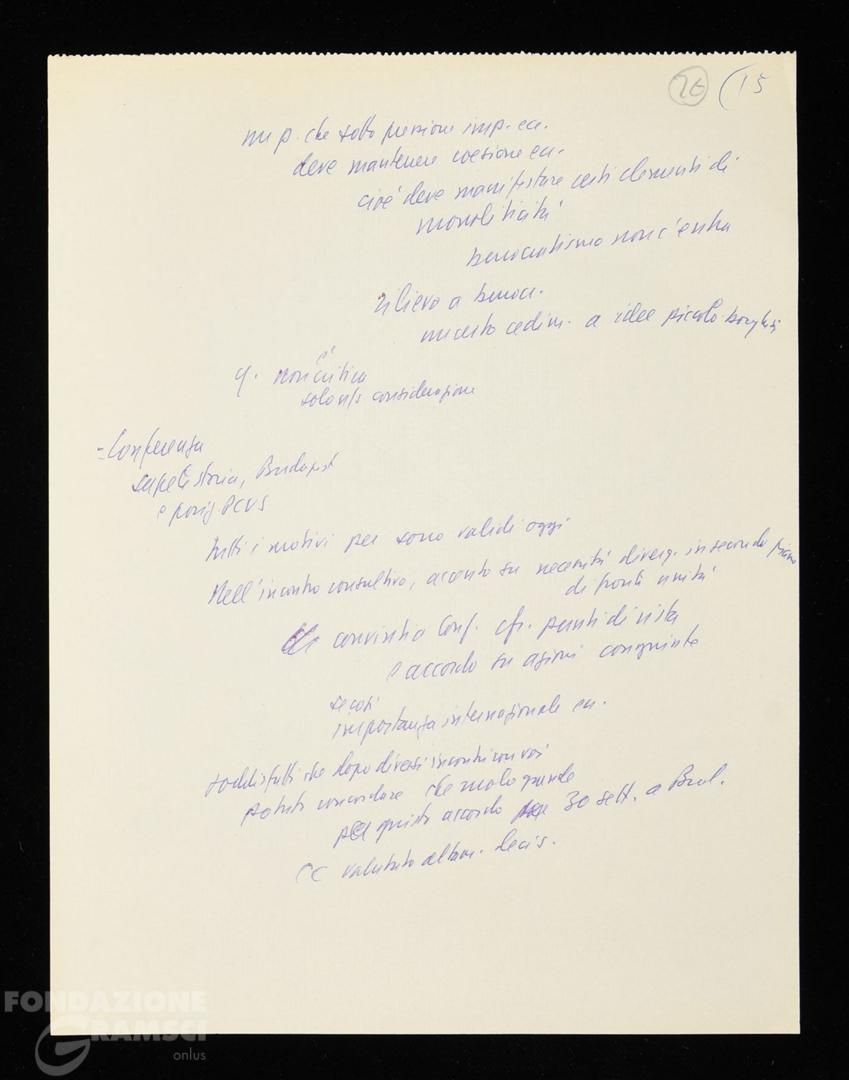 26 (15
un p. che sotto pressione imp. ecc.
deve mantenere coesione ecc.
cioè deve manifestare certi elementi di
monoliticità
burocratismo non c'entra
rilievo a buroc.
cedim. a idee piccolo-borghesi
q. non è critica
solo ns considerazione
- Conferenza
sapete storia, Budapest
e posiz PCUS
tutti i motivi per sono validi oggi
Nell'incontro consultivo, accento su necessità diverg. in secondo piano
di fronte unità
convinti a Conf. cfr. punti di vista
e accordo su azioni congiunte
se così
importanza internazionale ecc.
soddisfatti che dopo diversi incontri con voi
potuto concordare che
per questo accordo per 30 sett. a Bud.
CC valutato decis.
FONDAZIONE
GRAMSCI
onlus